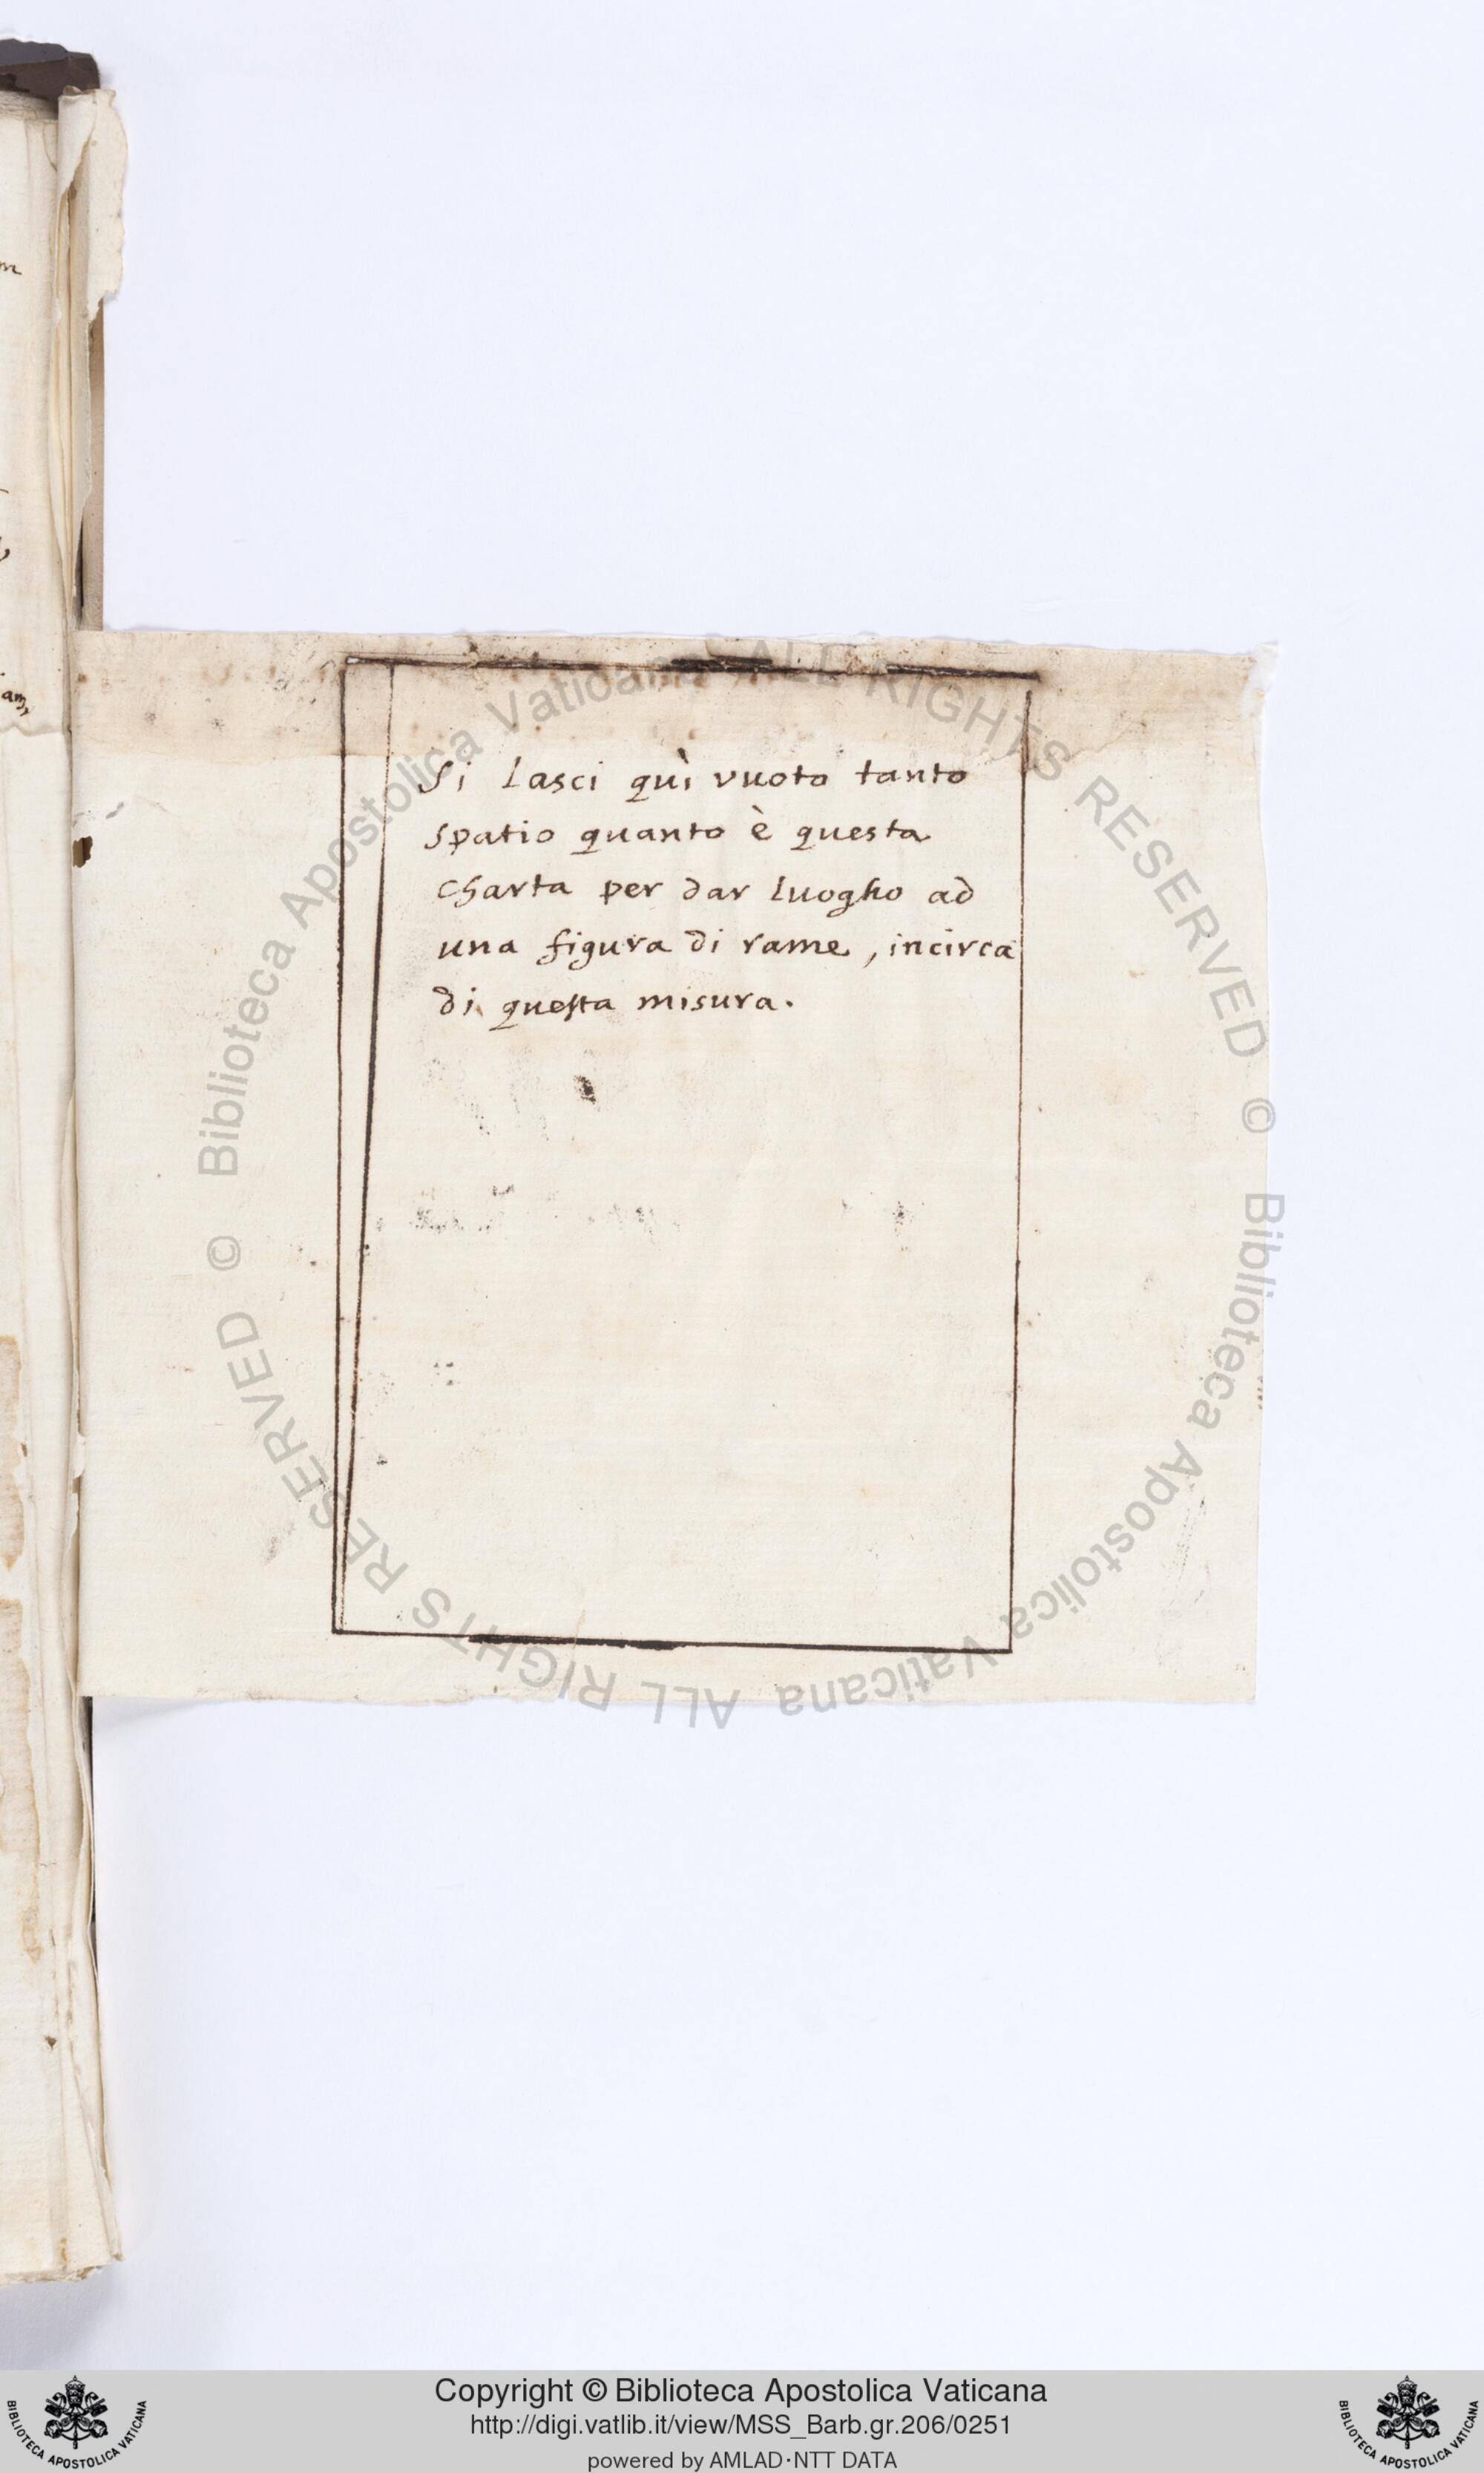 Si Lasci quì vuoto tanto
spatio quanto è questa
charta per dar luogho ad
una figura di rame, incirca
di questa misura.
© Biblioteca Apostolica Vaticana ALL RIGHTS RESERVED
© Biblioteca Apostolica Vaticana ALL RIGHTS RESERVED
Copyright © Biblioteca Apostolica Vaticana
http://digi.vatlib.it/view/MSS_Barb.gr.206/0251
powered by AMLAD·NTT DATA
BIBLIOTECA APOSTOLICA VATICANA
BIBLIOTECA APOSTOLICA VATICANA